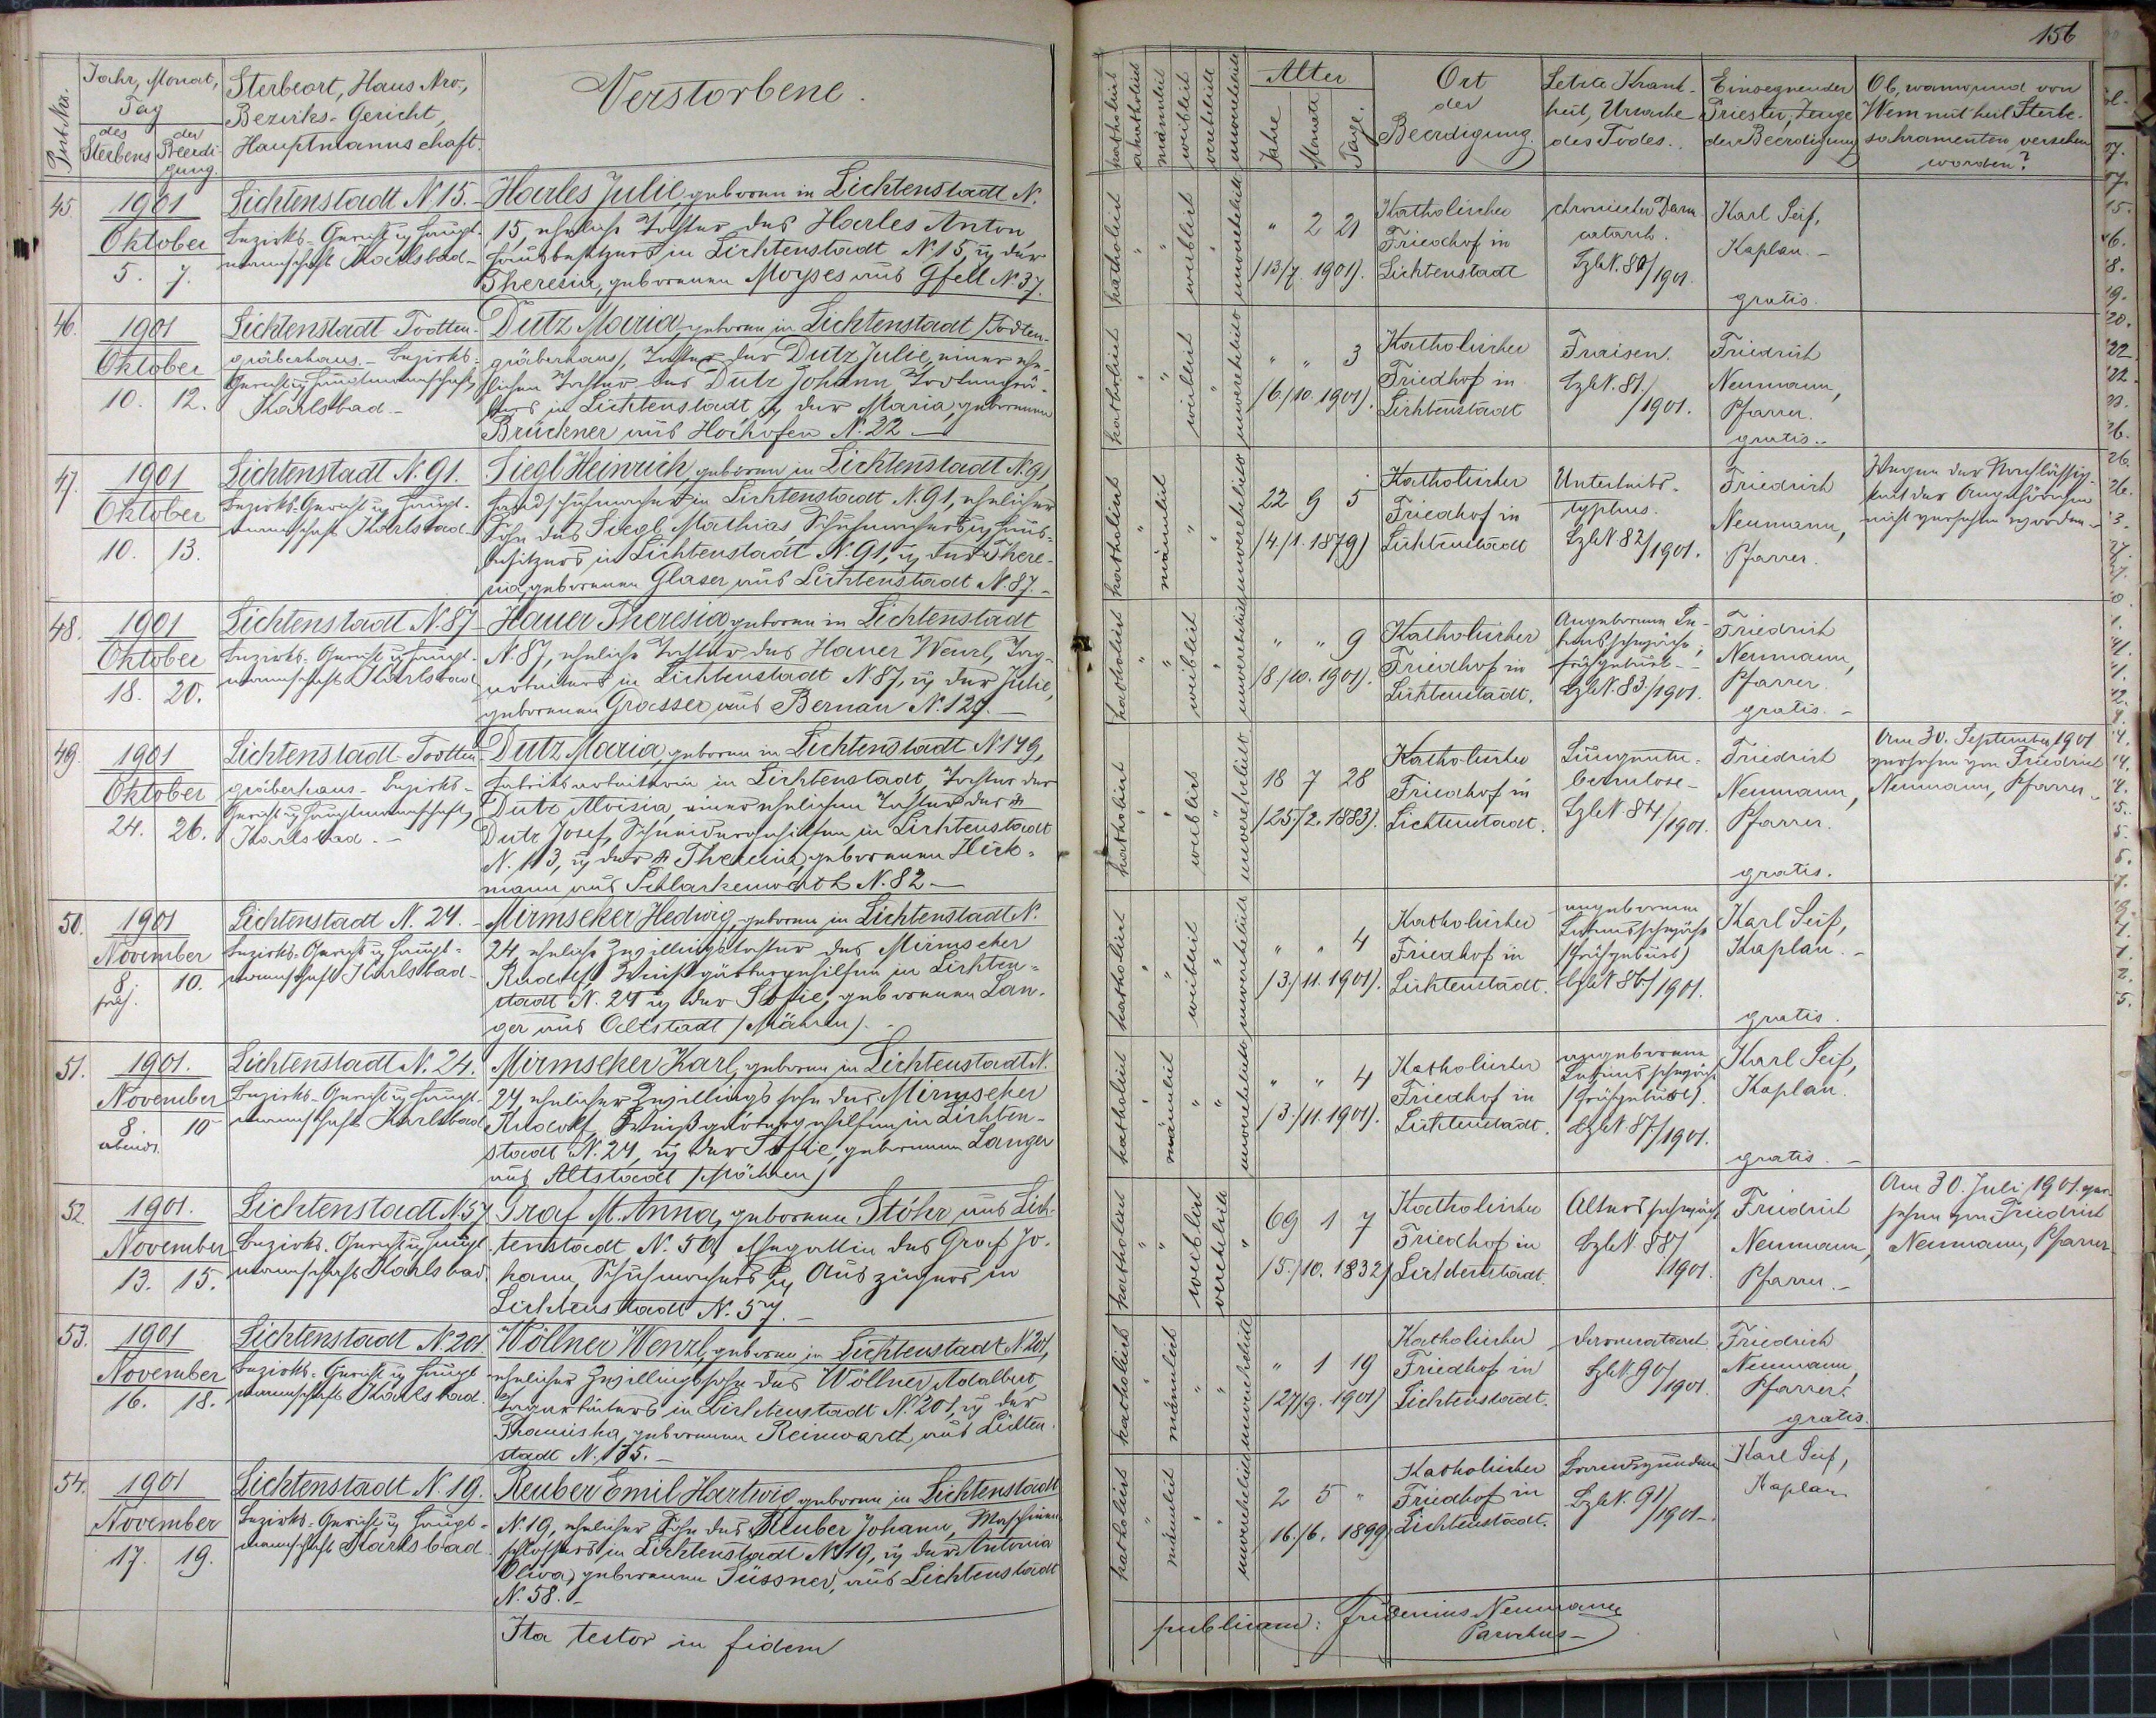 156
Post Nro.
Jahr, Monat,
Tag
des Sterbens
der Beerdigung.
Sterbeort, Haus Nro.,
Bezirks-Gericht,
Hauptmannschaft.
Verstorbene.
katholisch
akatholisch
männlich
weiblich
verehelicht
unverehelicht
Alter
Jahre
Monate
Tage.
Ort
der
Beerdigung.
Letzte Krank-
heit, Ursache
des Todes.
Einsegnender
Priester, Zeuge
der Beerdigung
Ob, wann und von
Wem mit heil. Sterbe-
sakramenten versehen
worden?
45.
1901
Oktober
5. 7.
Lichtenstadt N. 15.
Bezirks-Gericht u Haupt-
mannschaft Karlsbad
Harles Julie, geboren in Lichtenstadt N.
15, eheliche Tochter des Harles Anton
Hausbesitzers in Lichtenstadt N. 15, u der
Theresia, geborenen Moyses aus Gfell N. 37.
katholisch " " weiblich " unverehelicht
" 2 21
/13/7. 1901).
Katholischer
Friedhof in
Lichtenstadt
chronischer Darm
catarrh.
Karl Seif,
Kaplan.
gratis.
46.
1901
Oktober
10. 12.
Lichtenstadt Todten-
gräberhaus. - Bezirks-
Gericht u Hauptmannschaft
Karlsbad. -
Dutz Maria, geboren in Lichtenstadt /Todten-
gräberhaus/, Tochter der Dutz Julie, einer ehe-
lichen Tochter des Dutz Johann Todtengrä-
bers in Lichtenstadt u der Maria, geborenen
Brückner aus Hochofen N. 22 -
katholisch " " weiblich " unverehelicht
" " 3
/6/10. 1901).
Katholischer
Friedhof in
Lichtenstadt
Fraisen.
LzbN. 81./1901.
Friedrich
Neumann,
Pfarrer.
gratis.
47.
1901
Oktober
10. 13.
Lichtenstadt N. 91.
Bezirks-Gericht u Haupt-
mannschaft Karlsbad
Siegl Heinrich, geboren in Lichtenstadt N. 91,
Handschuhmacher in Lichtenstadt N. 91, ehelicher
Sohn des Siegl Mathias, Schuhmachers u Haus-
besitzers in Lichtenstadt N. 91, u der There-
sia, geborenen Glaser aus Lichtenstadt N. 87. -
katholisch " männlich " " unverehelicht
22 9 5
/4./1. 1879)
Katholischer
Friedhof in
Lichtenstadt
Unterleibs-
typhus.
LzbN 82/1901.
Friedrich
Neumann,
Pfarrer.
Wegen der Nachlässig-
keit der Angehörigen
nicht versehen worden -
48.
1901
Oktober
18. 20.
Lichtenstadt N. 87
Bezirks-Gericht u Haupt-
mannschaft Karlsbad
Hauer Theresia, geboren in Lichtenstadt
N. 87, eheliche Tochter des Hauer Wenzl, Tag-
arbeiters in Lichtenstadt N 87, u der Julie,
geborenen Grasser aus Bernau N. 129. -
katholisch " " weiblich " unverehelicht
" " 9
/8/10. 1901).
Katholischer
Friedhof in
Lichtenstadt.
Angeborene Le-
bensschwäche,
Frühgeburt -
LzbN. 83./1901.
Friedrich
Neumann,
Pfarrer.
gratis. -
49.
1901
Oktober
24. 26.
Lichtenstadt Todten
gräberhaus - Bezirks-
Gericht u Hauptmannschaft
Karlsbad. -
Dutz Maria, geboren in Lichtenstadt N 149,
Fabriksarbeiterin in Lichtenstadt, Tochter der
Dutz Aloisia, einer ehelichen Tochter des
Dutz Josef, Schneidergehilfen in Lichtenstadt
N. 113, u der Theresia, geborenen Hick-
mann aus Schlackenwerth N. 82 -
katholisch " " weiblich " unverehelicht
18 7 28
/25./2. 1883).
Katholischer
Friedhof in
Lichtenstadt.
Lungentu-
berculose -
LzbN 84/1901.
Friedrich
Neumann,
Pfarrer.
gratis.
Am 30. September 1901
versehen von Friedrich
Neumann, Pfarrer
50.
1901
November
8 früh. 10.
Lichtenstadt N. 24.
Bezirks-Gericht u Haupt-
mannschaft Karlsbad
Mirmseker Hedwig, geboren in Lichtenstadt N.
24, eheliche Zwillingstochter des Mirmseker
Rudolf, Weißgärbergehilfen in Lichten-
stadt N. 24 u der Sofie, geborenen Lan-
ger aus Altstadt /Mähren).
katholisch " " weiblich " unverehelicht
" " 4
/3./11. 1901).
Katholischer
Friedhof in
Lichtenstadt.
angeborene
Lebensschwäche
(Frühgeburt)
LzbN 86/1901.
Karl Seif,
Kaplan. -
gratis.
51.
1901.
November
8 abends. 10
Lichtenstadt N. 24.
Bezirks-Gericht u Haupt-
mannschaft Karlsbad
Mirmseker Karl, geboren in Lichtenstadt N.
24, ehelicher Zwillingssohn des Mirmseker
Rudolf, Weißgärbergehilfen in Lichten-
stadt N. 24, u der Sofie, geborenen Langer
aus Altstadt /Mähren)
katholisch " männlich " " unverehelicht
" " 4
/3./11. 1901).
Katholischer
Friedhof in
Lichtenstadt.
angeborene
Lebensschwäche
(Frühgeburt).
LzbN 87/1901.
Karl Seif,
Kaplan.
gratis. -
52.
1901.
November
13. 15.
Lichtenstadt N. 57
Bezirks-Gericht u Haupt
mannschaft Karlsbad.
Graf M. Anna, geborene Stöhr aus Lich-
tenstadt N. 50, Ehegattin des Graf Jo-
hann, Schuhmachers u Auszüglers in
Lichtenstadt N. 57. -
katholisch " " weiblich verehelicht "
69 1 7
/5./10. 1832)
Katholischer
Friedhof in
Lichtenstadt.
Altersschwäche
LzbN. 88/1901.
Friedrich
Neumann,
Pfarrer. -
Am 30. Juli 1901 ver-
sehen von Friedrich
Neumann, Pfarrer
53.
1901
November
16. 18.
Lichtenstadt N. 201.
Bezirks-Gericht u Haupt
mannschaft Karlsbad.
Wöllner Wenzl, geboren in Lichtenstadt N. 201,
ehelicher Zwillingssohn des Wöllner Adalbert,
Tagarbeiters in Lichtenstadt N. 201, u der
Franziska, geborenen Reinwarth, aus Lichten
stadt N. 175. -
katholisch " männlich " " unverehelicht
" 1 19
/27/9. 1901)
Katholischer
Friedhof in
Lichtenstadt.
Darmcatarrh
LzbN. 90/1901.
Friedrich
Neumann,
Pfarrer.
gratis.
54.
1901
November
17. 19.
Lichtenstadt N. 19.
Bezirks-Gericht u Haupt-
mannschaft Karlsbad
Reuber Emil Hartwig, geboren in Lichtenstadt
N. 19, ehelicher Sohn des Reuber Johann, Maschinen
schlossers in Lichtenstadt N 19, u der Antonia
Oliva, geborenen Süssner, aus Lichtenstadt
N. 58. -
katholisch " männlich " " unverehelicht
2 5 "
16./6. 1899
Katholischer
Friedhof in
Lichtenstadt.
LzbN. 91/1901 -
Karl Seif,
Kaplan
Ita testor in fidem
publicam: Fridericus Neumann
Parochus -